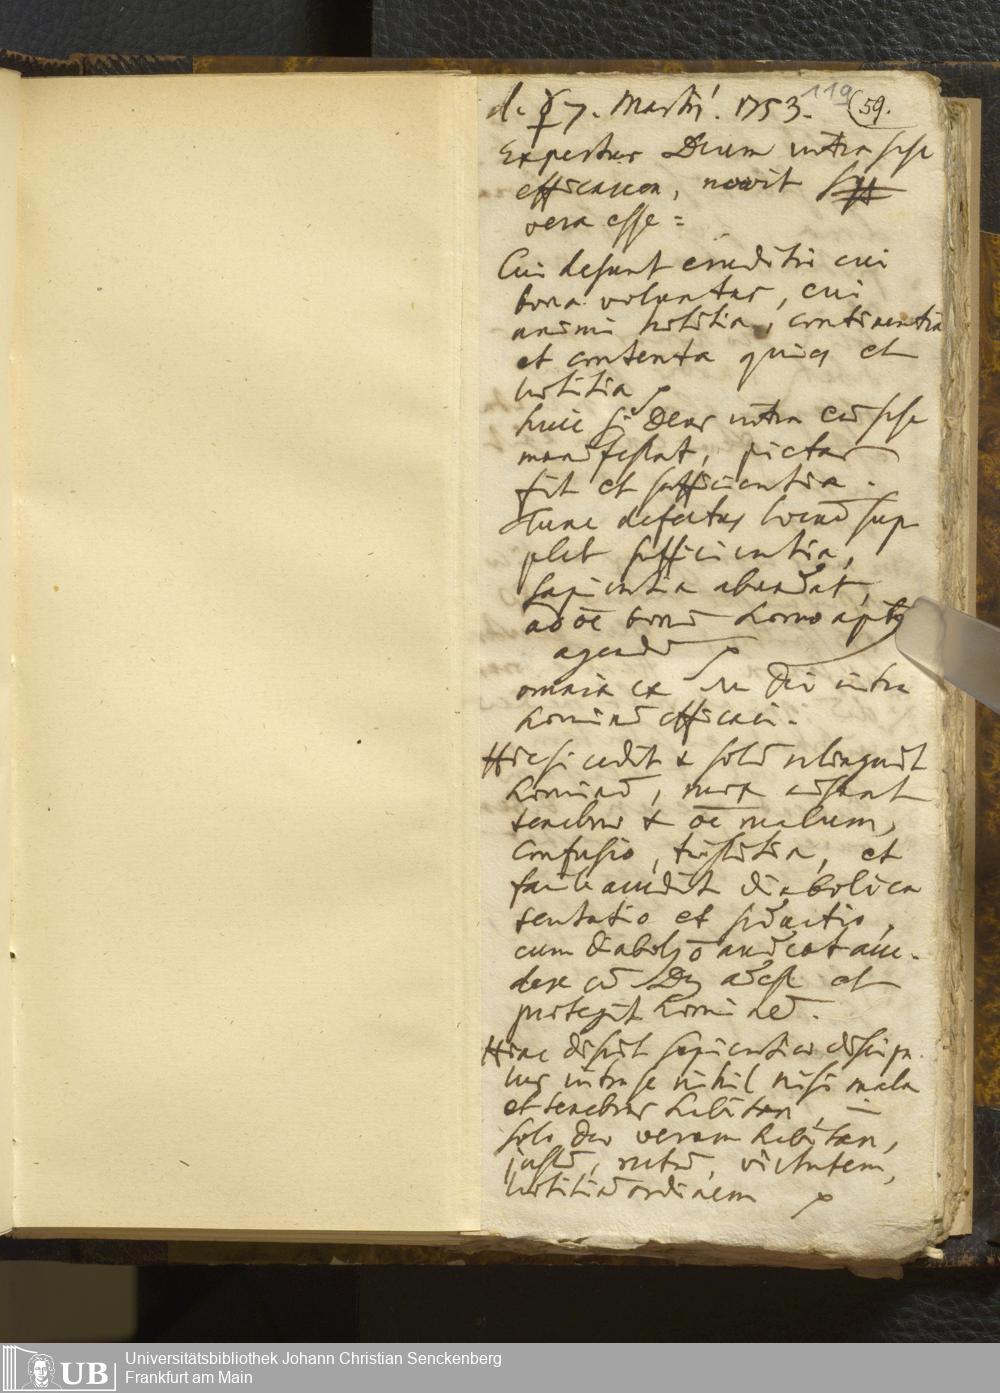 d. ☿ 7. Martij. 1753. 119 (59.
Expertus Deum intra sese
efficacem, novit
vera esse:
Cui desunt eruditio cui
bona voluntas, cui
animi lætitia, continentia
et contenta quies et
lætitia
huic si Deus intra eū sese
manifestat, pietas
fit et sufficientia.
Tunc defectus locū sup
plet sufficientia,
sapientia abundat,
ad oē bonū homo aptus
agendū
omnia ex Deo intra
hominē efficaci.
Hic si cedit & solū relinquit
hominē, mox adsunt
tenebræ & oē malum,
confusio, tristitia, et
facile accedit diabolica
tentatio et
cum diabolus ō audeat acce-
dere cū Ds adest et
protegit hominē.
Hinc discit sapientiæ discipu
lus intra se nihil nisi mala
et tenebras habitare, in
solo Deo verum habitare,
justū, rectū, virtutem,
lætitiā ordinem
UB
Universitätsbibliothek Johann Christian Senckenberg
Frankfurt am Main